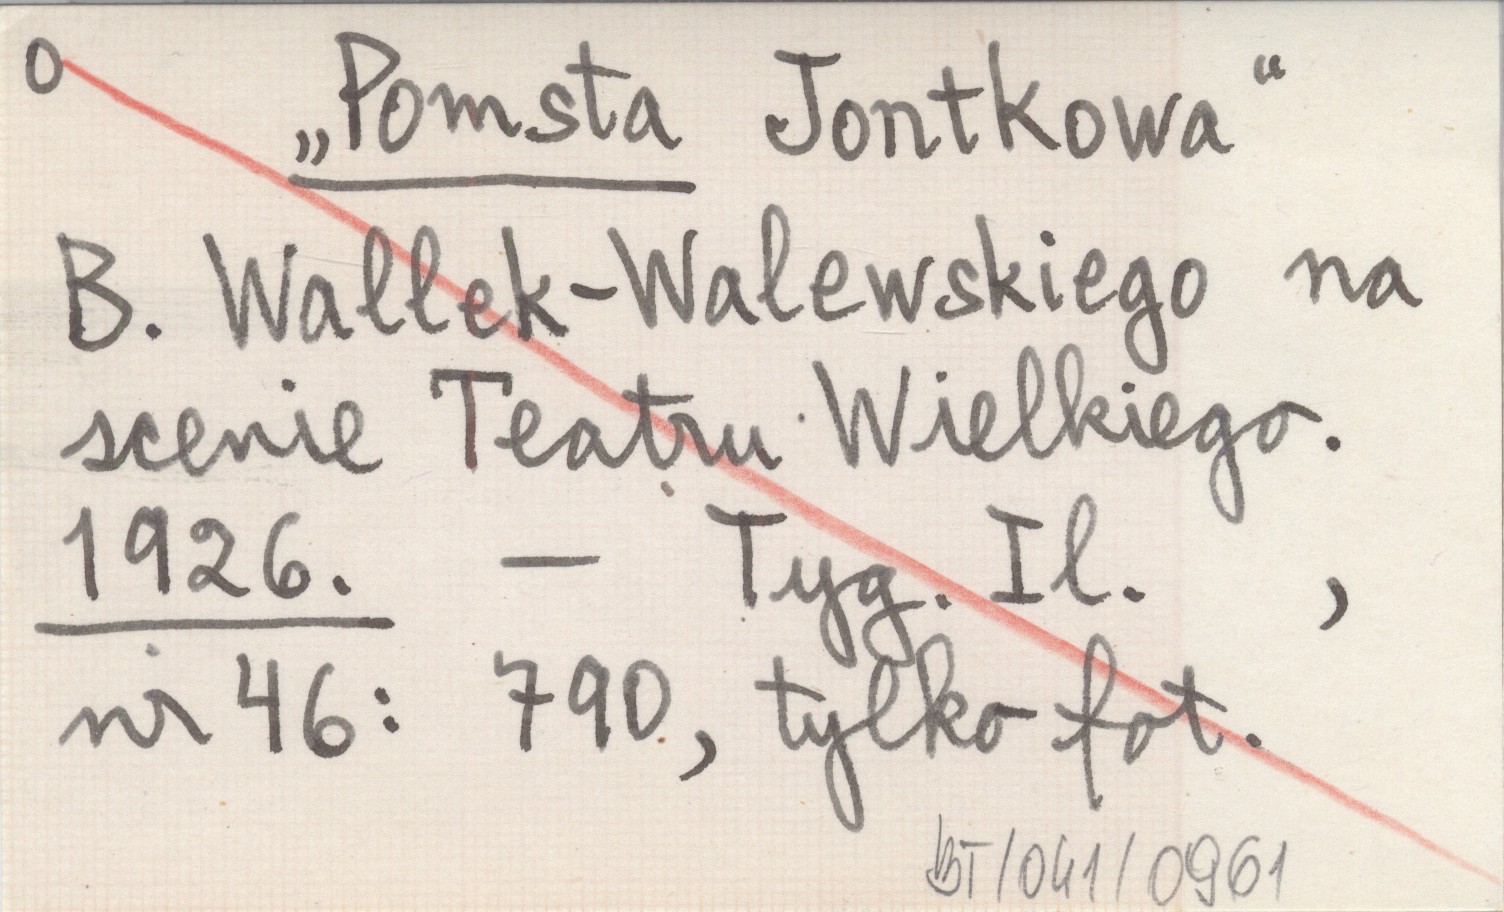 O
„Pomsta Jontkowa“
B. Wallek-Walewskiego na
scenie Teatru Wielkiego.
1926. — Tyg. Il. ,
nr 46: 790, tylko fot.
BT/041/0961